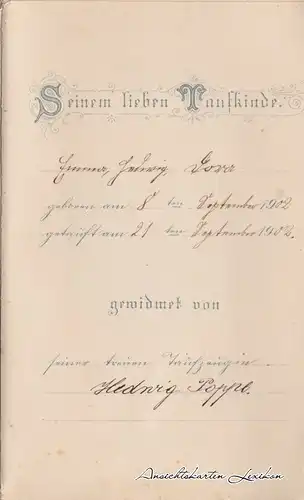 Seinem lieben Taufkinde.
Emma, Hedwig, Dora
geboren am 8 ten September 1902
getauft am 21 ten September 1902.
gewidmet von
seiner treuen Taufzeugin
Hedwig Poppe.
Ansichtskarten Lexikon